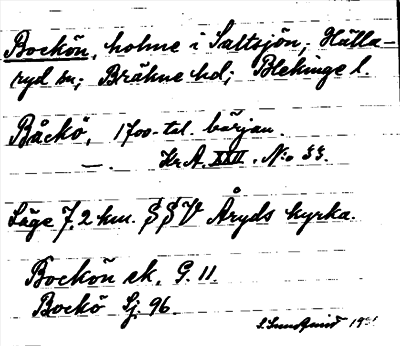 Bockön, holme i Saltsjön; Hälla-
ryd sn; Bräkne hd; Blekinge l.
Båckö, 1700-tal. början.
— . Kr A. XXII. N:o 33.
Läge 7,2 km. SSV Åryds kyrka.
Bockön ek. G. 11.
Bockö Sj. 96.
S. Lundqvist